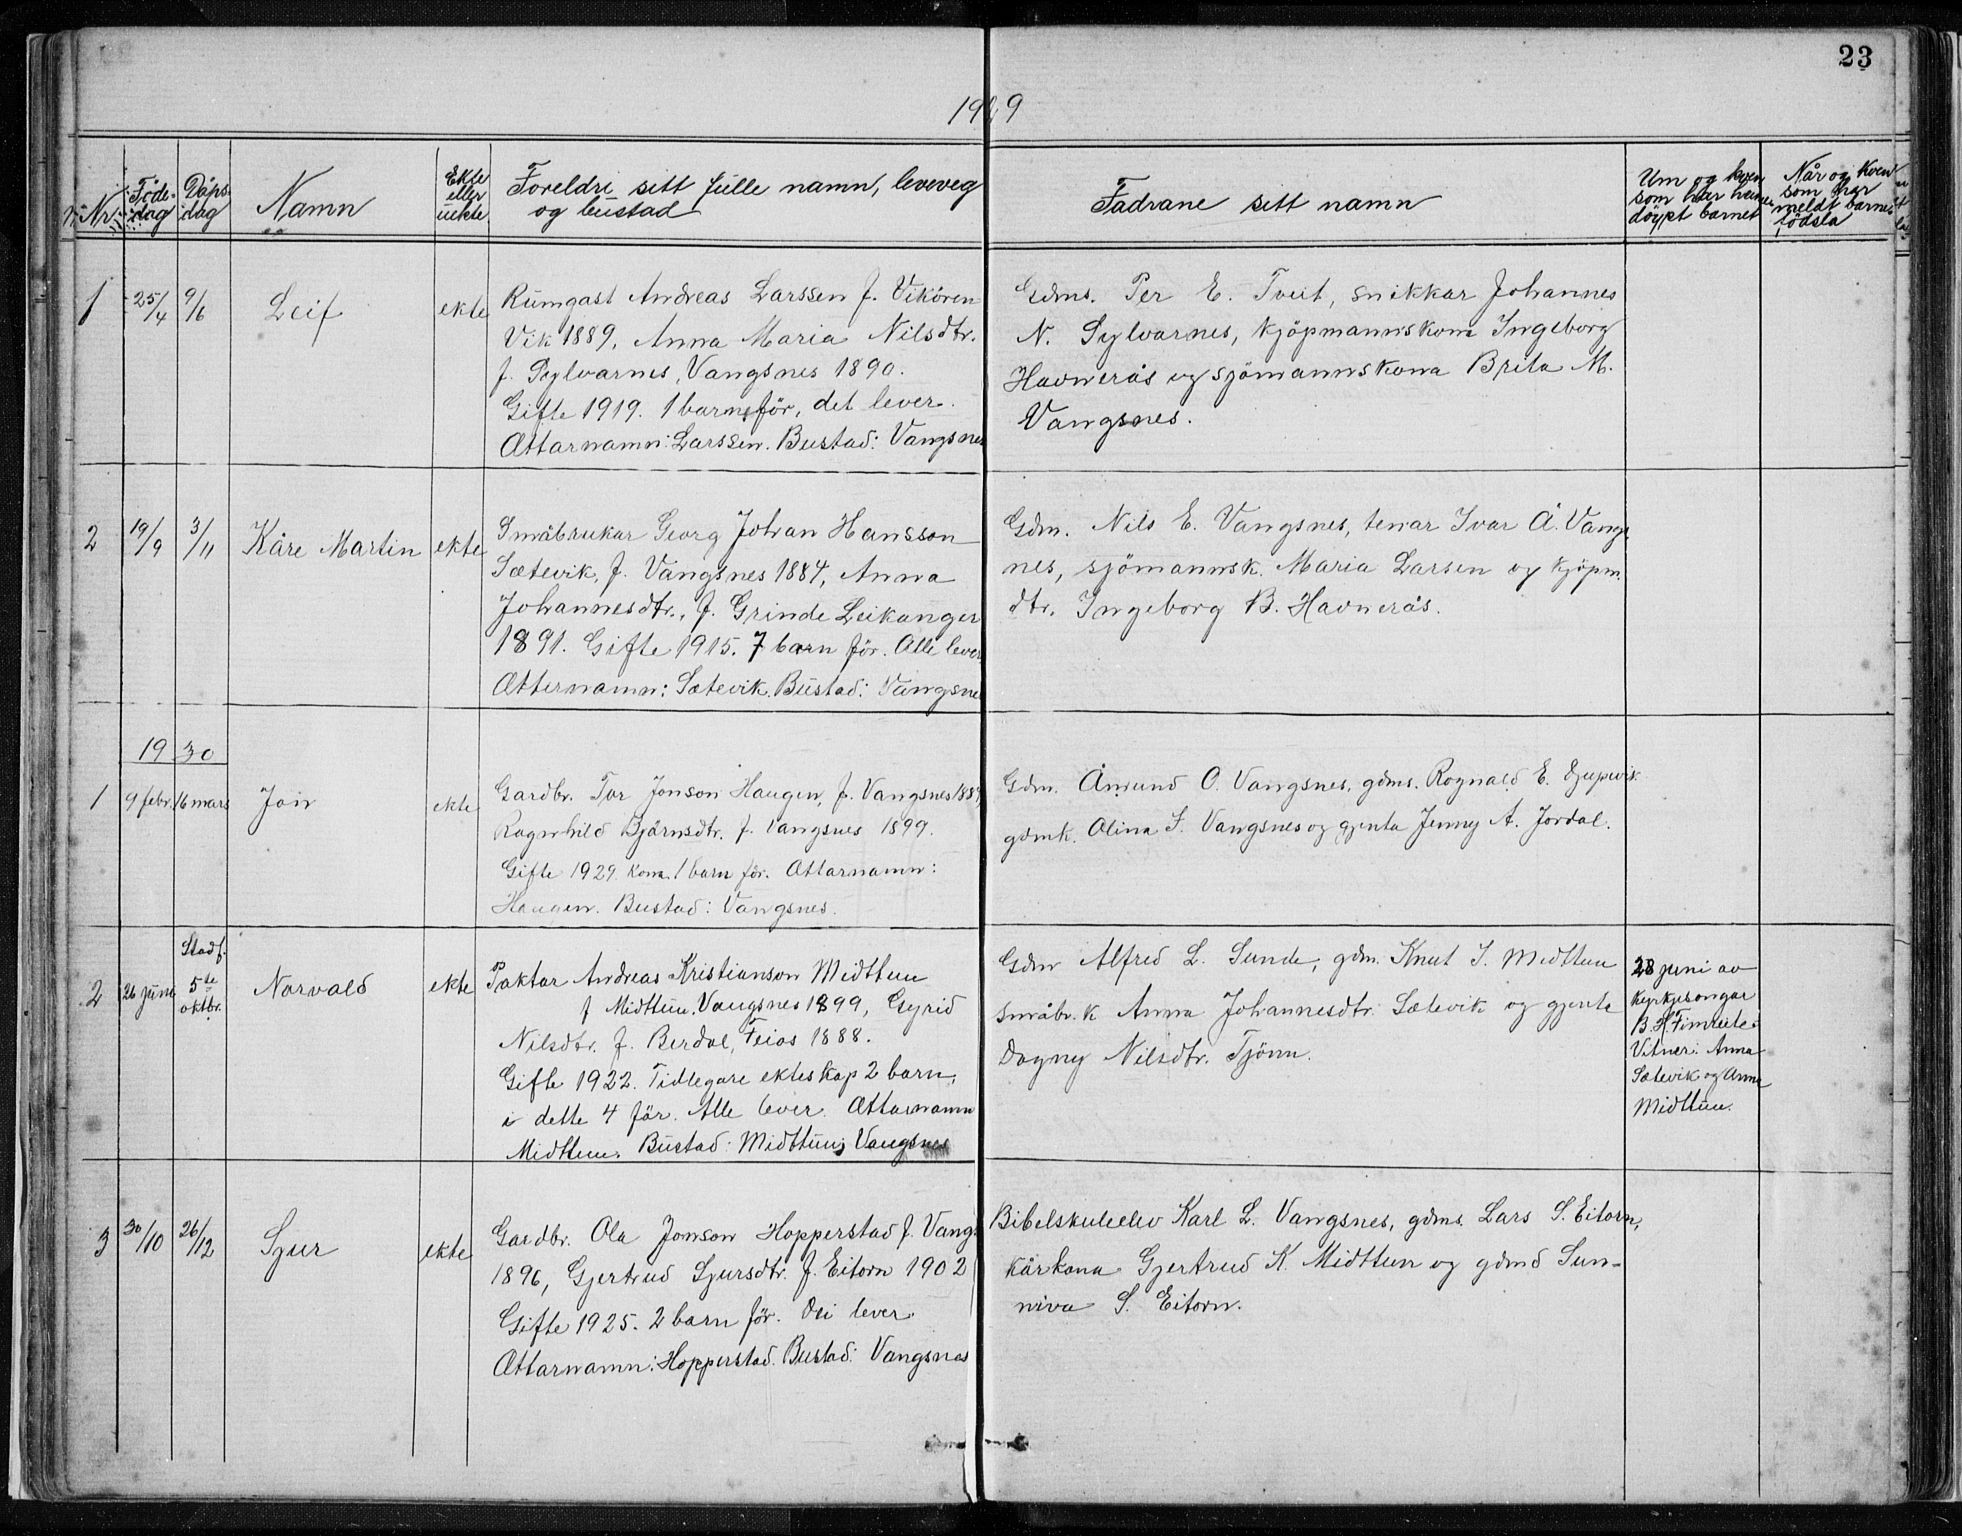 23
1929
Nr.
Føde-
dag
Dåps
dag
Namn
Ekte
eller
uekte
Foreldri sitt fulle namn, leveveg
og bustad
Fadrane sitt namn
Um og kven
som har heime
døypt barnet
Når og kven
som har
meldt barnets
fødsla
1 25/4 9/6 Leif ekte
Rumgast Andreas Larssen f. Vikören
Vik 1889, Anna Maria Nilsdtr.
f. Sylvarnes, Vangsnes 1890.
Gifte 1919. 1 barn för, det lever.
Ættarnamn: Larssen. Bustad: Vangsnes
Gdms. Per E. Tveit, snikkar Johannes
N. Sylvarnes, kjøpmannskona Ingeborg
Havnerås og sjömannskona Brita M.
Vangsnes.
2 19/9 3/11 Kåre Martin ekte
Småbrukar Georg Johan Hansson
Sætevik, f. Vangsnes 1884, Anna
Johannesdtr., f. Grinde Leikanger
1891. Gifte 1915. 7 barn för. Alle lever
Ætternamn: Sætevik. Bustad: Vangsne
Gdm. Nils E. Vangsnes, tenar Ivar Å. Vangs
nes, sjömannsk. Maria Larsen og kjøpm.
dtr. Ingeborg B. Havnerås.
1930
1 9 febr. 16 mars Jon ekte
Gardbr. Tor Jonson Haugen, f. Vangsnes
Ragnhild Bjårnsdtr. f. Vangsnes 1899.
Gifte 1929. Kona 1 barn för. Ættarnamn:
Haugen. Bustad: Vangsnes.
Gdm. Ånund O. Vangsnes, gdms. Rognald E. Djupevik
gdmk. Olina S. Vangsnes og gjenta Jenny A. Jordal.
2 26 juni Stadf.
5te
oktbr. Norvald ekte
Paktar Andreas Kristianson Midttun
f Midttun, Vangsnes 1899, Gyrid
Nilsdtr. f. Berdal, Feios 1888.
Gifte 1922. Tidlegare ekteskap 2 barn,
i dette 4 för. Alle lever. Ættarnamn
Midttun. Bustad: Midttun, Vangsnes
Gdm Alfred L. Sunde, gdm. Knut J. Midttun
småbr.k Anna Johannesdtr. Sætevik og gjenta
Dagny Nilsdtr. Tjönn.
28 juni av
kyrkjesongar
B. H. Fimreite.
Vitner: Anna
Sætevik og Anna
Midttun.
3 30/10 26/12 Sjur ekte
Gardbr. Ola Jonson Hopperstad f. Vangs
1896, Gjertrud Sjursdtr. f. Eitorn 1902
Gifte 1925. 2 barn för. Dei lever
Ættarnamn: Hopperstad. Bustad: Vangsnes
Bibelskuleelev Karl L. Vangsnes, gdms. Lars S. Eitorn,
kårkona Gjertrud K. Midttun og gdmd Sun-
niva S. Eitorn.